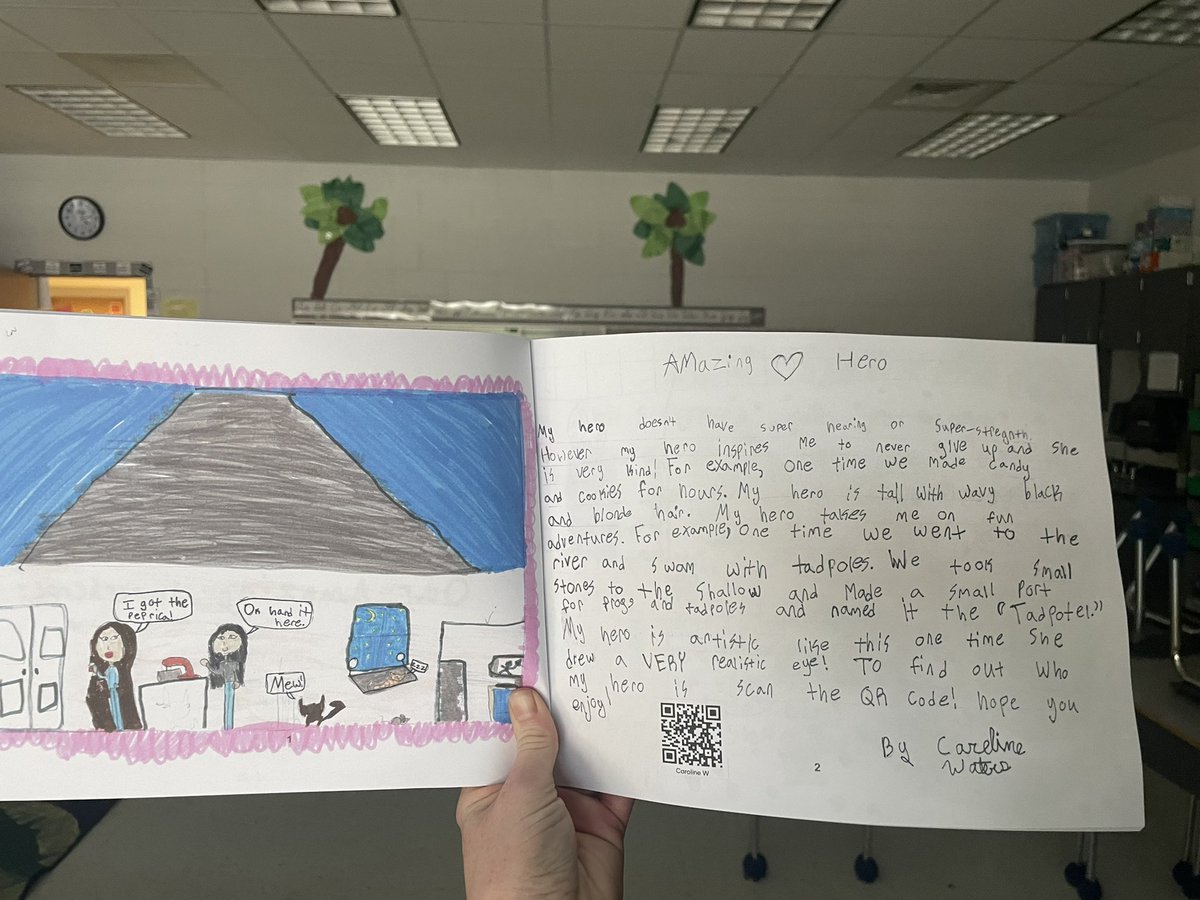 I got the
peprica!
Ok hand it
here.
Mew!
zzz
1
AMazing ♡ Hero
My hero doesn't have super hearing or super-stregnth.
However my hero inspires me to never give up and she
is very kind! For example, one time we made candy
and cookies for hours. My hero is tall with wavy black
and blonde hair. My hero takes me on fun
adventures. For example, one time we went to the
river and swam with tadpoles. We took small
stones to the shallow and made a small port
for frogs and tadpoles and named it the "Tadpotel."
My hero is artistic like this one time she
drew a VERY realistic eye! To find out who
my hero is scan the QR code! hope you
enjoy!
Caroline W
2
By Caroline
Waters